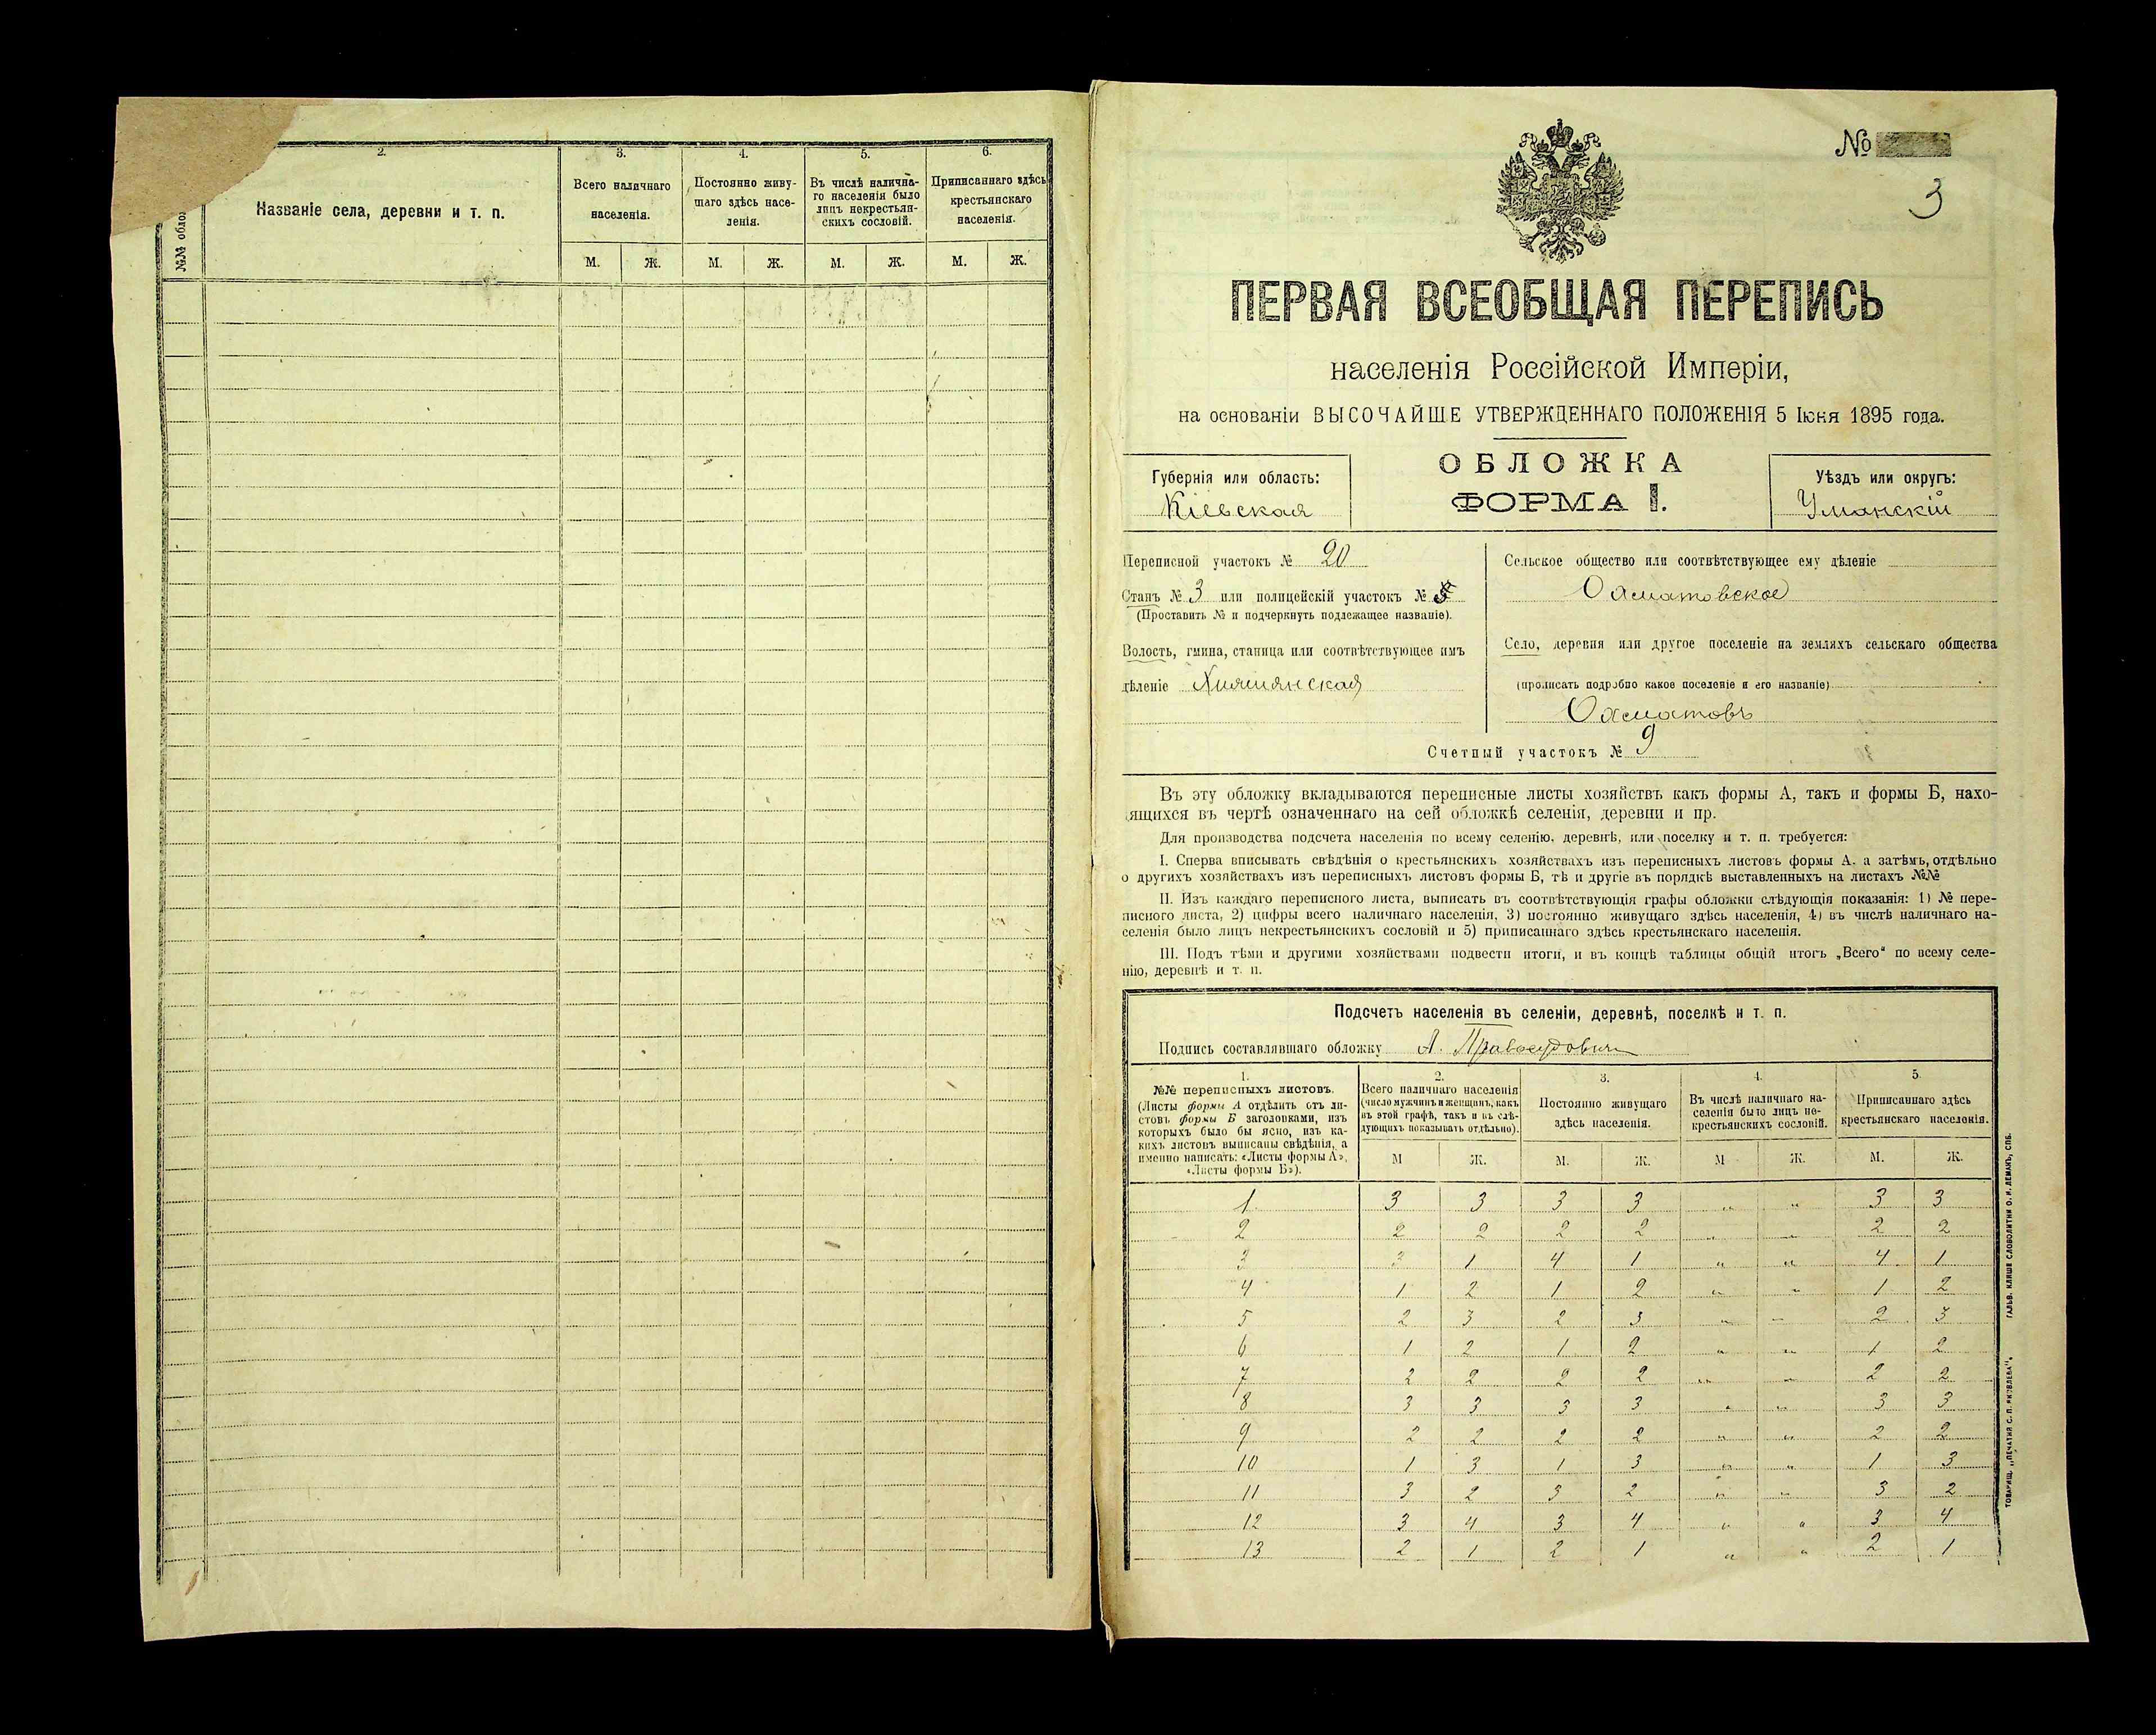 №№ обло
2.
Названіе села, деревни и т. п.
3.
Всего наличнаго
населенія.
4.
Постоянно живу-
щаго здѣсь насе-
ленія.
5.
Въ числѣ налична-
го населенія было
лицъ некрестьян-
скихъ сословій.
6.
Приписаннаго здѣсь
крестьянскаго
населенія.
М. Ж. М. Ж. М. Ж. М. Ж.
№
3
ПЕРВАЯ ВСЕОБЩАЯ ПЕРЕПИСЬ
населенія Россійской Имперіи,
на основаніи ВЫСОЧАЙШЕ УТВЕРЖДЕННАГО ПОЛОЖЕНІЯ 5 Іюня 1895 года.
ОБЛОЖКА
ФОРМА I.
Губернія или область:
Кіевская
Уѣздъ или округъ:
Уманскій
Переписной участокъ № 20
Станъ № 3 или полицейскій участокъ №
(Проставить № и подчеркнуть подлежащее названіе).
Волость, гмина, станица или соотвѣтствующее имъ
дѣленіе
Сельское общество или соотвѣтствующее ему дѣленіе
Охматовское
Село, деревня или другое поселеніе на земляхъ сельскаго общества
(прописать подробно какое поселеніе и его названіе)
Охматовъ
Счетный участокъ № 9
Въ эту обложку вкладываются переписные листы хозяйствъ какъ формы А, такъ и формы Б, нахо-
ящихся въ чертѣ означеннаго на сей обложкѣ селенія, деревни и пр.
Для производства подсчета населенія по всему селенію, деревнѣ, или поселку и т. п. требуется:
I. Сперва вписывать свѣдѣнія о крестьянскихъ хозяйствахъ изъ переписныхъ листовъ формы А, а затѣмъ, отдѣльно
о другихъ хозяйствахъ изъ переписныхъ листовъ формы Б, тѣ и другіе въ порядкѣ выставленныхъ на листахъ №№
II. Изъ каждаго переписного листа, выписать въ соотвѣтствующія графы обложки слѣдующія показанія: 1) № пере-
писного листа, 2) цифры всего наличнаго населенія, 3) постоянно живущаго здѣсь населенія, 4) въ числѣ наличнаго на-
селенія было лицъ некрестьянскихъ сословій и 5) приписаннаго здѣсь крестьянскаго населенія.
III. Подъ тѣми и другими хозяйствами подвести итоги, и въ концѣ таблицы общій итогъ „Всего“ по всему селе-
нію, деревнѣ и т. п.
Подсчетъ населенія въ селеніи, деревнѣ, поселкѣ и т. п.
Подпись составлявшаго обложку А. Правосудовичъ
1.
№№ переписныхъ листовъ.
(Листы формы А отдѣлить отъ ли-
стовъ формы Б заголовками, изъ
которыхъ было бы ясно, изъ ка-
кихъ листовъ выписаны свѣдѣнія, а
именно написать: «Листы формы А»,
«Листы формы Б»).
2.
Всего наличнаго населенія
(число мужчинъ и женщинъ, какъ
въ этой графѣ, такъ и въ слѣ-
дующихъ показывать отдѣльно).
3.
Постоянно живущаго
здѣсь населенія.
4.
Въ числѣ наличнаго на-
селенія было лицъ не-
крестьянскихъ сословій.
5.
Приписаннаго здѣсь
крестьянскаго населенія.
М Ж. М. Ж. М Ж. М. Ж.
1 3 3 3 3 „ „ 3 3
2 2 2 2 2 „ „ 2 2
3 3 1 4 1 „ „ 4 1
4 1 2 1 2 „ „ 1 2
5 2 3 2 3 „ „ 2 3
6 1 2 1 2 „ „ 1 2
7 2 2 2 2 „ „ 2 2
8 3 3 3 3 „ „ 3 3
9 2 2 2 2 „ „ 2 2
10 1 3 1 3 „ „ 1 3
11 3 2 3 2 „ „ 3 2
12 3 4 3 4 „ „ 3 4
13 2 1 2 1 „ „ 2 1
ТОВАРИЩ. „ПЕЧАТНЯ С. П. ЯКОВЛЕВА“. ГАЛЬВ. КЛИШЕ СЛОВОЛИТНИ О. И. ЛЕМАНЪ, СПБ.